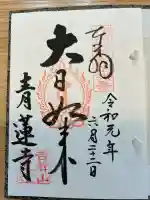 奉拝
令和元年
六月二十二日
大日如来
青蓮寺